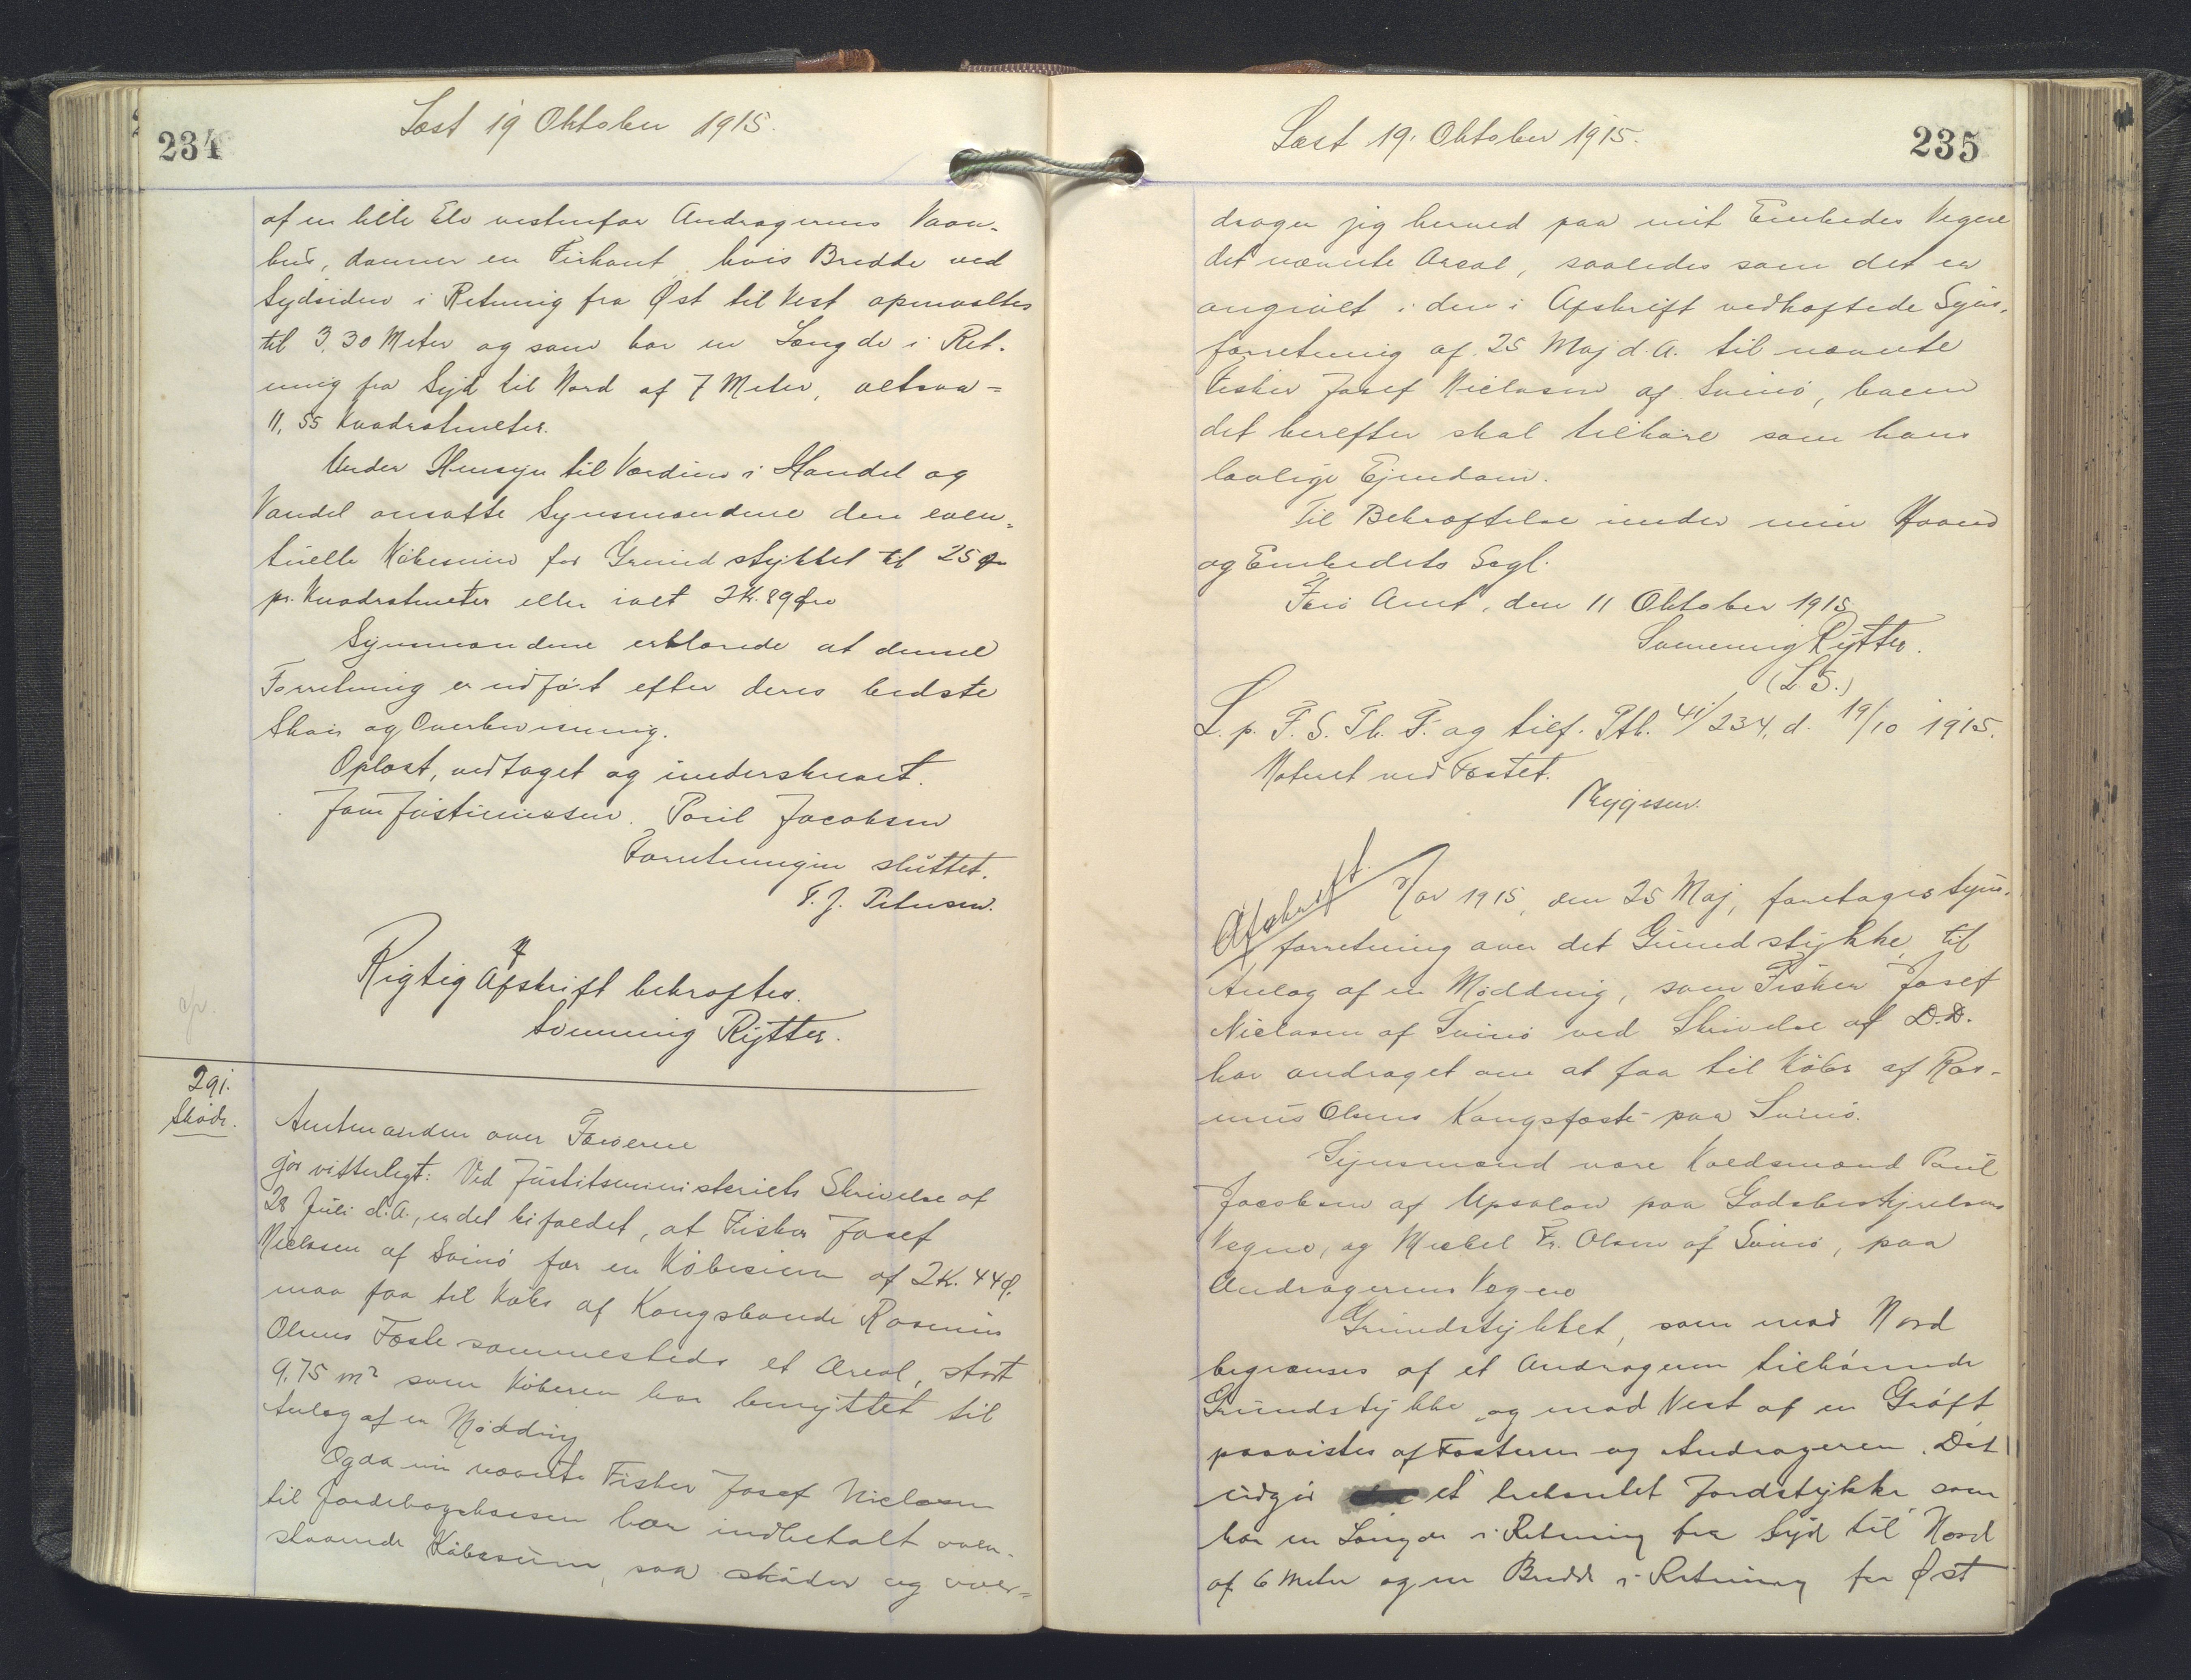 234
Læst 19 Oktober 1915.
af en lille Elv vestenfor Andragerens Vaan-
hus, danner en Firkant hvis Bredde ved
Sydsiden i Retning fra Øst til Vest opmaaltes
til 3,30 Meter og som har en Længde i Ret-
ning fra Syd til Nord af 7 Meter, altsaa =
11,55 Kvadratmeter.
Under Hensyn til Værdien i Handel og
Vandel ansatte Synsmændene den even-
tuelle Købesum for Grundstykket til 25 Ør
pr. Kvadratmeter eller ialt 2 Kr. 89 Øre
Synsmændene erklærede at denne
Forretning er udført efter deres bedste
Skøn og Overbevisning.
Oplæst, vedtaget og underskrevet.
Joen Justinussen. Poul Jacobsen
Forretningen sluttet.
F. J. Petersen.
Rigtig Afskrift bekræftes.
Svenning Rytter.
291.
Skøde.
Amtmanden over Færøerne
gør vitterligt: Ved Justitsministeriets Skrivelse af
28 Juli d.A., er det bifaldet, at Fisker Josef
Niclasen af Svinø for en Købesum af 2 Kr. 44 Ø.
maa faa til Købs af Kongsbonde Rasmus
Olsens Fæste sammesteds et Areal, stort
9,75 m² som Køberen har benyttet til
Anlæg af en Mødding
Og da nu nævnte Fisker Josef Niclasen
til Jordebogskassen har indbetalt oven-
staaende Købesum, saa skøder og over=
Læst 19. Oktober 1915.
235
drager jeg herved paa mit Embedes Vegne
det nævnte Areal, saaledes som det er
angivet i den i Afskrift vedhæftede Syns-
forretning af 25 Maj d.A. til nævnte
Fisker Josef Niclasen af Svinø, hvem
det herefter skal tilhøre som hans
lovlige Ejendom.
Til Bekræftelse under min Haand
og Embedets Segl.
Færø Amt, den 11 Oktober 1915
Svenning Rytter.
(L.S.)
L. p. F. S. Th. F. og tilf. Ptb. 41/234, d. 19/10 1915.
Noteret ved Fæstet.
Afskrift.
Aar 1915, den 25 Maj, foretages Syns-
forretning over det Grundstykke til
Anlæg af en Mødding, som Fisker Josef
Niclasen af Svinø ved Skrivelse af D.D.
har andraget om at faa til Købs af Ras-
mus Olsens Kongsfæste paa Svinø.
Synsmænd vare Kvedsmand Poul
Jacobsen af Upsalon paa Godsbestyrelsens
Vegne, og Mickel Fr. Olsen af Svinø, paa
Andragerens Vegne
Grundstykket, som mod Nord
begrænses af et Andrageren tilhørende
Grundstykke og mod Vest af en Grøft
paavistes af Fæsteren og Andrageren. Det
udgør et ubenyttet Jordstykke som
har en Længde i Retning fra Syd til Nord
af 6 Meter og en Bredde i Retning fra Øst